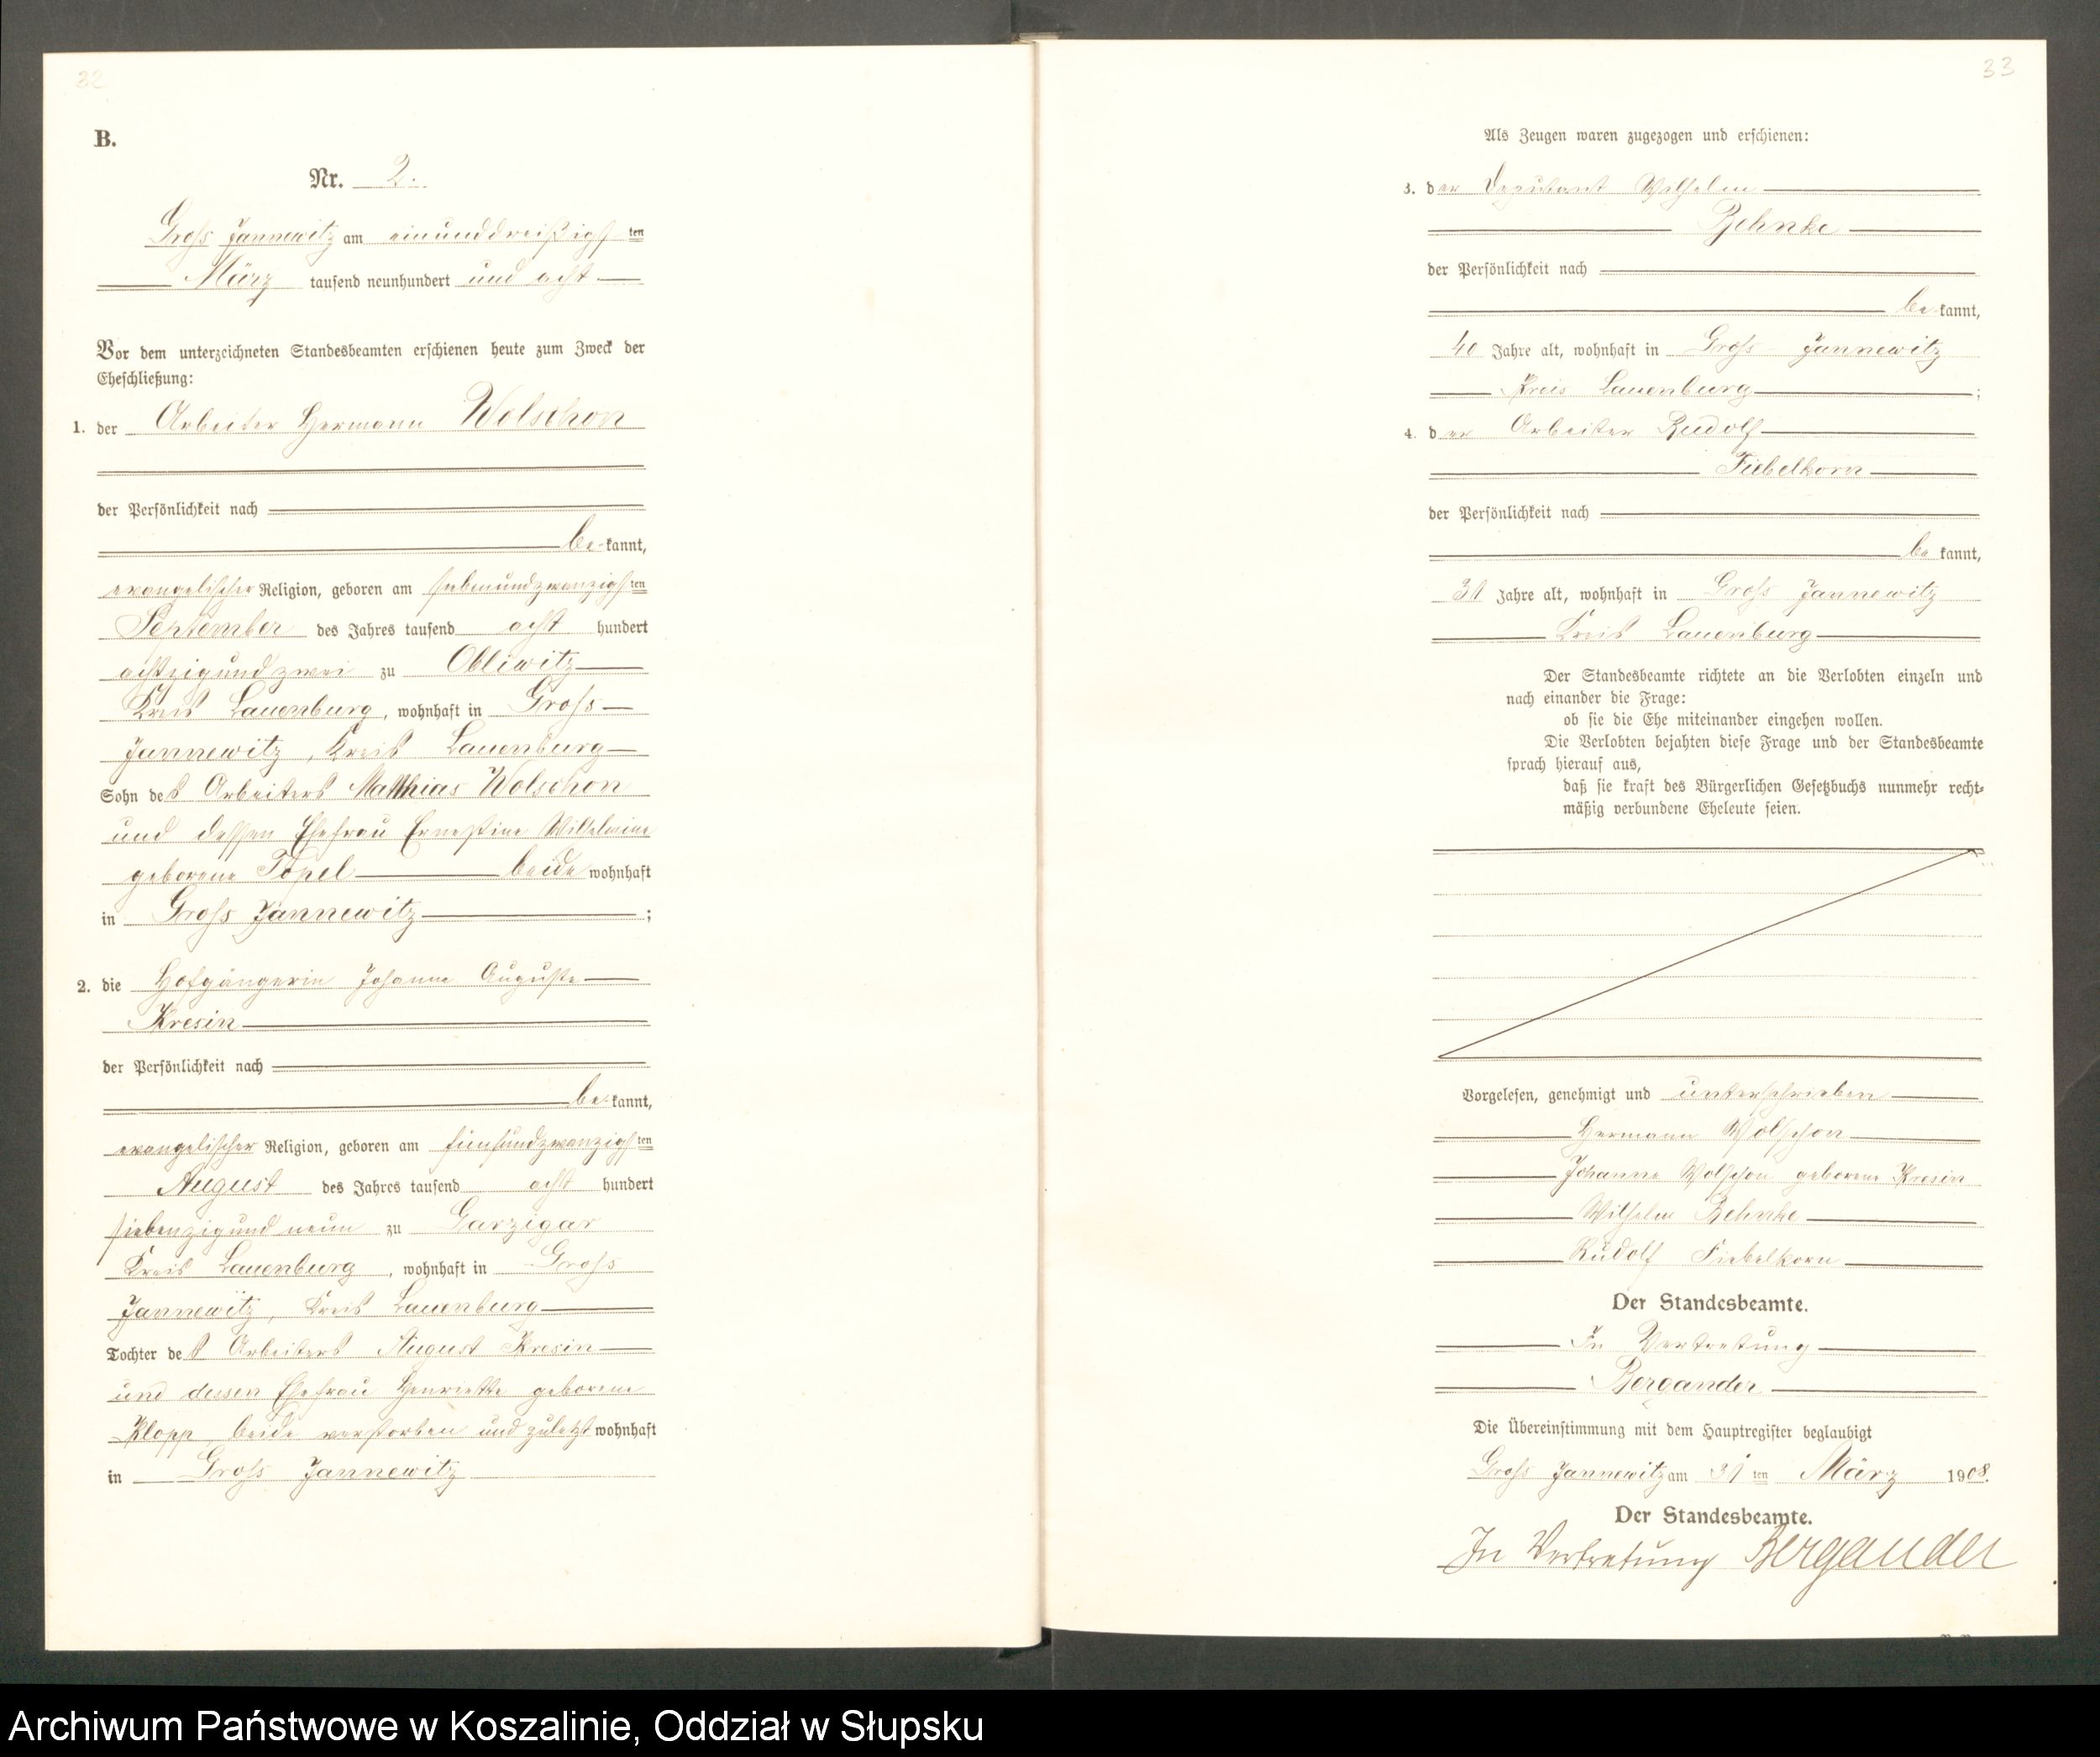 32
B.
Nr. 2.
Gross Jannewitz am einunddreißigsten
März tausend neunhundert und acht
Vor dem unterzeichneten Standesbeamten erschienen heute zum Zweck der
Eheschließung:
1. der Arbeiter Hermann Wolschon
der Persönlichkeit nach
bekannt,
evangelischer Religion, geboren am siebenundzwanzigsten
September des Jahres tausend acht hundert
achtzigundzwei zu Obliwitz
Kreis Lauenburg, wohnhaft in Gross
Jannewitz, Kreis Lauenburg
Sohn des Arbeiters Matthias Wolschon
und dessen Ehefrau Ernestine Wilhelmine
geborene Topel beide wohnhaft
in Gross Jannewitz ;
2. die Hofgängerin Johanne Auguste
Kresin
der Persönlichkeit nach
bekannt,
evangelischer Religion, geboren am fünfundzwanzigsten
August des Jahres tausend acht hundert
siebenzigundneun zu Garzigar
Kreis Lauenburg, wohnhaft in Gross
Jannewitz, Kreis Lauenburg
Tochter des Arbeiters August Kresin
und dessen Ehefrau Henriette geborene
Klopp, beide verstorben und zuletzt wohnhaft
in Gross Jannewitz
33
Als Zeugen waren zugezogen und erschienen:
3. der Deputant Wilhelm
Behnke
der Persönlichkeit nach
bekannt,
40 Jahre alt, wohnhaft in Gross Jannewitz
Kreis Lauenburg ;
4. der Arbeiter Rudolf
Fiebelkorn
der Persönlichkeit nach
bekannt,
31 Jahre alt, wohnhaft in Gross Jannewitz
Kreis Lauenburg
Der Standesbeamte richtete an die Verlobten einzeln und
nach einander die Frage:
ob sie die Ehe miteinander eingehen wollen.
Die Verlobten bejahten diese Frage und der Standesbeamte
sprach hierauf aus,
daß sie kraft des Bürgerlichen Gesetzbuchs nunmehr recht-
mäßig verbundene Eheleute seien.
Vorgelesen, genehmigt und unterschrieben
Hermann Wolschon
Johanne Wolschon geborene Kresin
Wilhelm Behnke
Rudolf Fiebelkorn
Der Standesbeamte.
In Vertretung
Bergander
Die Übereinstimmung mit dem Hauptregister beglaubigt
Gross Jannewitz am 31ten März 1908.
Der Standesbeamte.
In Vertretung Bergander
Archiwum Państwowe w Koszalinie, Oddział w Słupsku